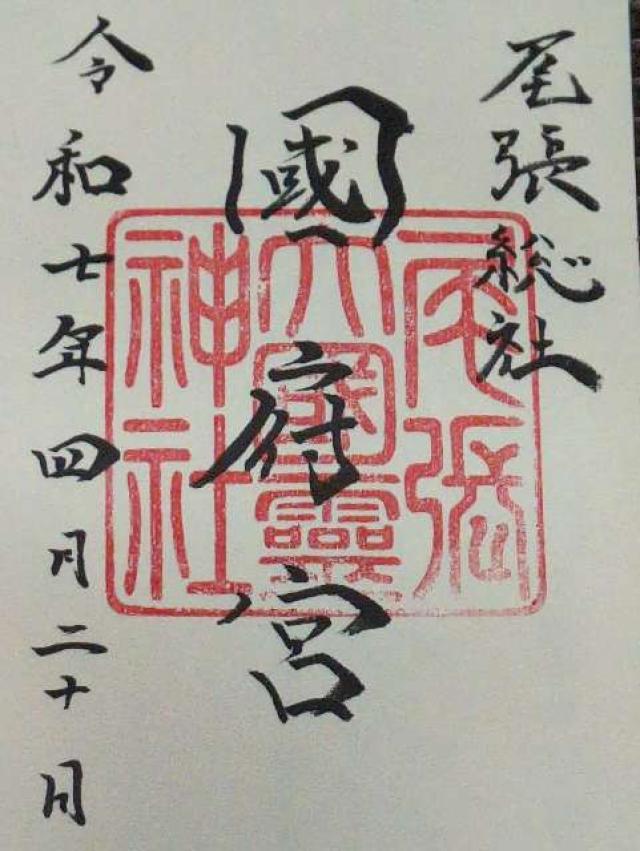 尾張総社
國府宮
令和七年四月二十日
尾張
大國霊
神社